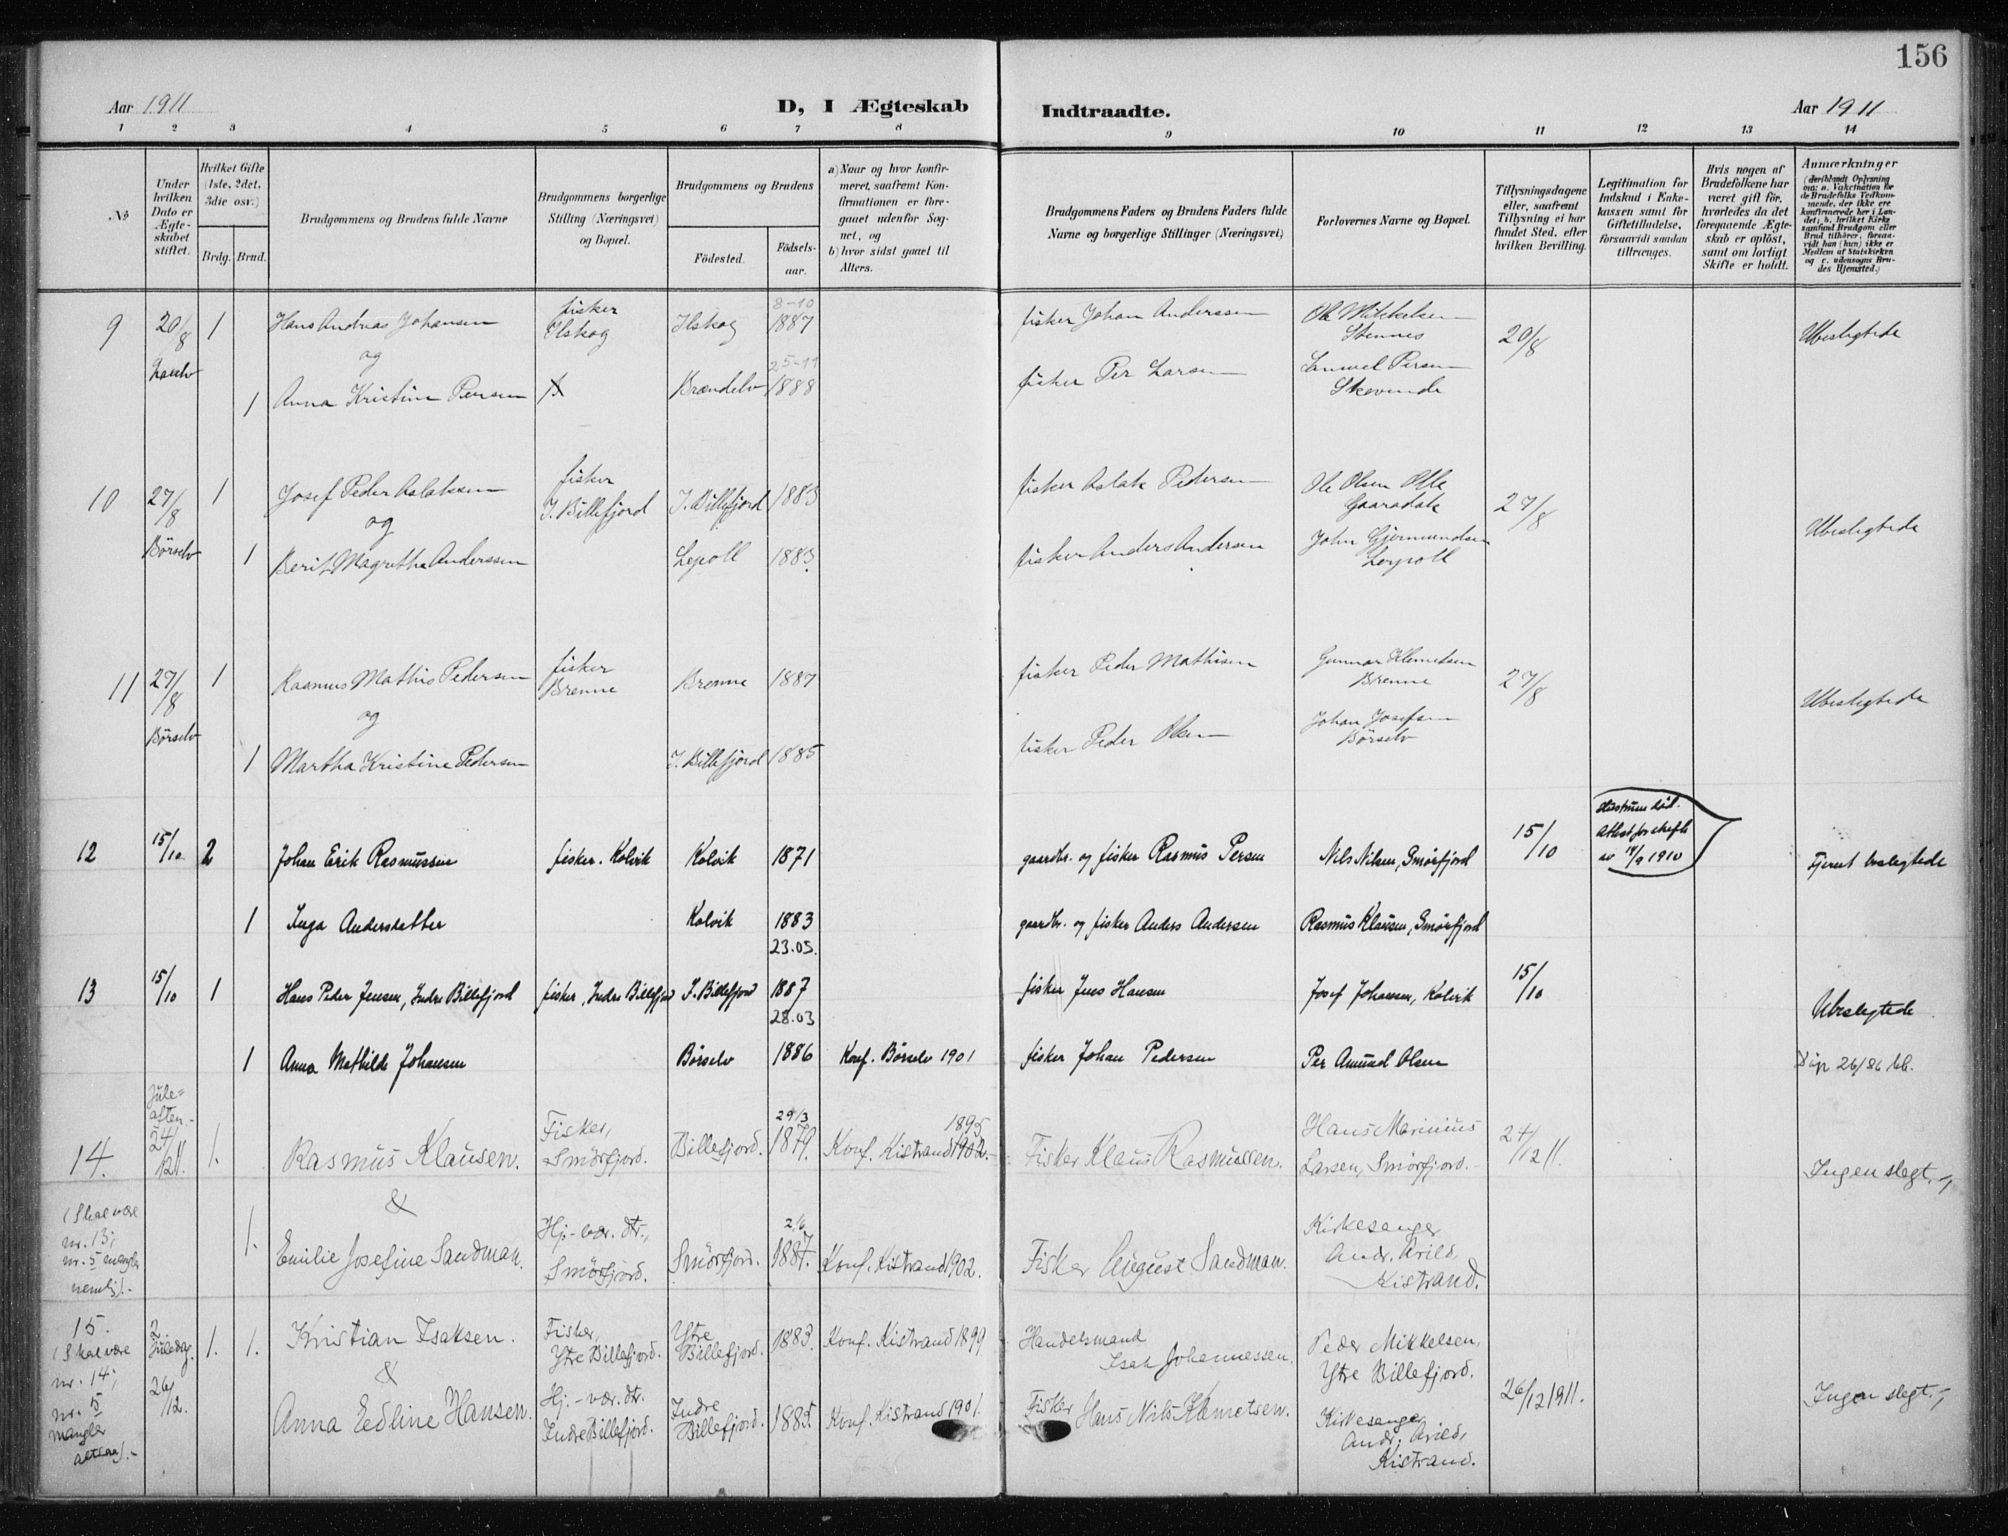 156
Aar 1911
D, I Ægteskab Indtraadte.
Aar 1911
1 2 3 4 5 6 7 8 9 10 11 12 13 14
No
Under hvilken Dato er Ægteskabet stiftet.
Hvilket Gifte (1ste, 2det, 3die osv.)
Brdg. Brud.
Brudgommens og Brudens fulde Navne
Brudgommens borgerlige Stilling (Næringsvei) og Bopæl.
Brudgommens og Brudens
Födested.
Födsels-aar.
a) Naar og hvor konfirmeret, saafremt Konfirmationen er foregaaet udenfor Sognet, og
b) hvor sidst gaaet til Alters.
Brudgommens Faders og Brudens Faders fulde Navne og borgerlige Stillinger (Næringsvei)
Forlovernes Navne og Bopæl.
Tillysningsdagene eller, saafremt Tillysning ei har fundet Sted, efter hvilken Bevilling.
Legitimation for Indskud i Enkekassen samt for Giftetilladelse, forsaavidt saadan tiltrænges.
Hvis nogen af Brudefolkene har været gift för, hvorledes da det foregaaende Ægteskab er oplöst, samt om lovligt Skifte er holdt.
Anmærkninger (deriblandt Oplysning om: a. Vakcination för de Brudefolks Vedkommende, der ikke ere konfirmerede her i Landet; b. hvilket Kirkesamfund Brudgom eller Brud tilhörer, forsaavidt han (hun) ikke er Medlem af Statskirken og c. udensogns Brudes Hjemsted.)
9 20/8 1 Hans Andreas Johansen fisker Ilskog Ilskog 8-10 1887 fisker Johan Anderssen Ole Mikkelsen Stennes 20/8 Ubeslegtede
og
1 Anna Kristine Persen Brændelv 25-11 1888 fisker Per Larsen Samuel Persen
10 27/8 Börselv 1 Josef Peder Aslaksen fisker I. Billefjord I. Billefjord 1883 fisker Aslak Pedersen Ole Olsen 27/8 Ubeslegtede
og
1 Berit Magretha Anderssen Lepoll 1883 fisker Anders Andersen John Gjermundsen
11 27/8 Börselv 1 Rasmus Mathis Pedersen fisker Brenne Brenne 1887 fisker Peder Mathisen Gunnar Klemetsen Brenne 27/8 Ubeslegtede
og
1 Martha Kristine Pedersen I. Billefjord 1885 fisker Peder Olsen Johan Josefsen Börselv
12 15/10 2 Johan Erik Rasmussen fisker. Kolvik Kolvik 1871 gaardbr. og fisker Rasmus Persen Nils Nilsen, Smörfjord 15/10 Hustruen död. Attest for skifte av 14/9 1910 Fjernt beslegtede
1 Inga Andersdatter Kolvik 1883 gaardbr. og fisker Anders Andersen Rasmus Klausen, Smörfjord
13 15/10 1 Hans Peder Jensen, Indre Billefjord fisker, Indre Billefjord I. Billefjord 23.05. 1887 fisker Jens Hansen Josef Johansen, Kolvik 15/10 Ubeslegtede
1 Anna Mathilde Johansen Börselv 28.03 1886 Konf. Börselv 1901 fisker Johan Pedersen Per Amund Olsen Döp 26/86
14. Juleaften.- 24/12 11. 1. Rasmus Klausen. Fisker, Smörfjord. Billefjord. 29/3 1879. Konf. Kistrand 1902.- 1895 Fisker Klaus Rasmussen. Hans Marinius Larsen, Smörfjord.- 24/12 11. Ingen slegt.-,
&
(Skal være nr. 13; nr. 5 mangler nemlig).- 1. Emilie Josefine Sandman. Hj.-vær. dtr., Smörfjord. Smörfjord. 2/6 1887. Konf. Kistrand 1902. Fisker August Sandman. Kirkesanger Andr. Arild, Kistrand.
15. (Skal være nr. 14; nr. 5 mangler altsaa).- 2. Juledag. 26/12. 1. 1. Kristian Isaksen. Fisker, Ytre Billefjord. Ytre Billefjord. 1883. Konf. Kistrand 1899 Handelsmand Isak Johannessen. Peder Mikkelsen, Ytre Billefjord.
&
Anna Eedline Hansen. Hj.-vær. dtr. Indre Billefjord. Indre Billefjord. 1885 Konf. Kistrand 1901. Fisker Hans Nils Klemetsen. Kirkesanger Andr. Arild, Kistrand. 26/12 1911. Ingen slegt.-,